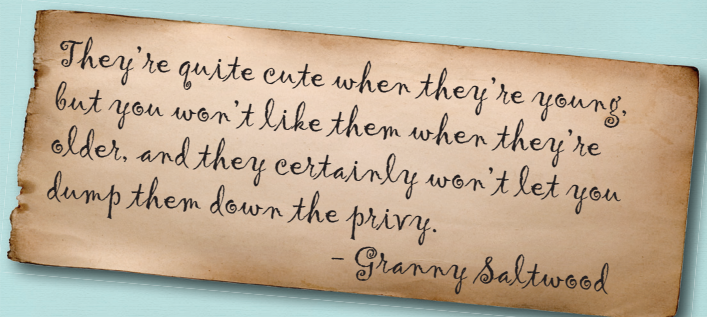 They're quite cute when they're young,
but you won't like them when they're
older, and they certainly won't let you
dump them down the privy.
- Granny Saltwood